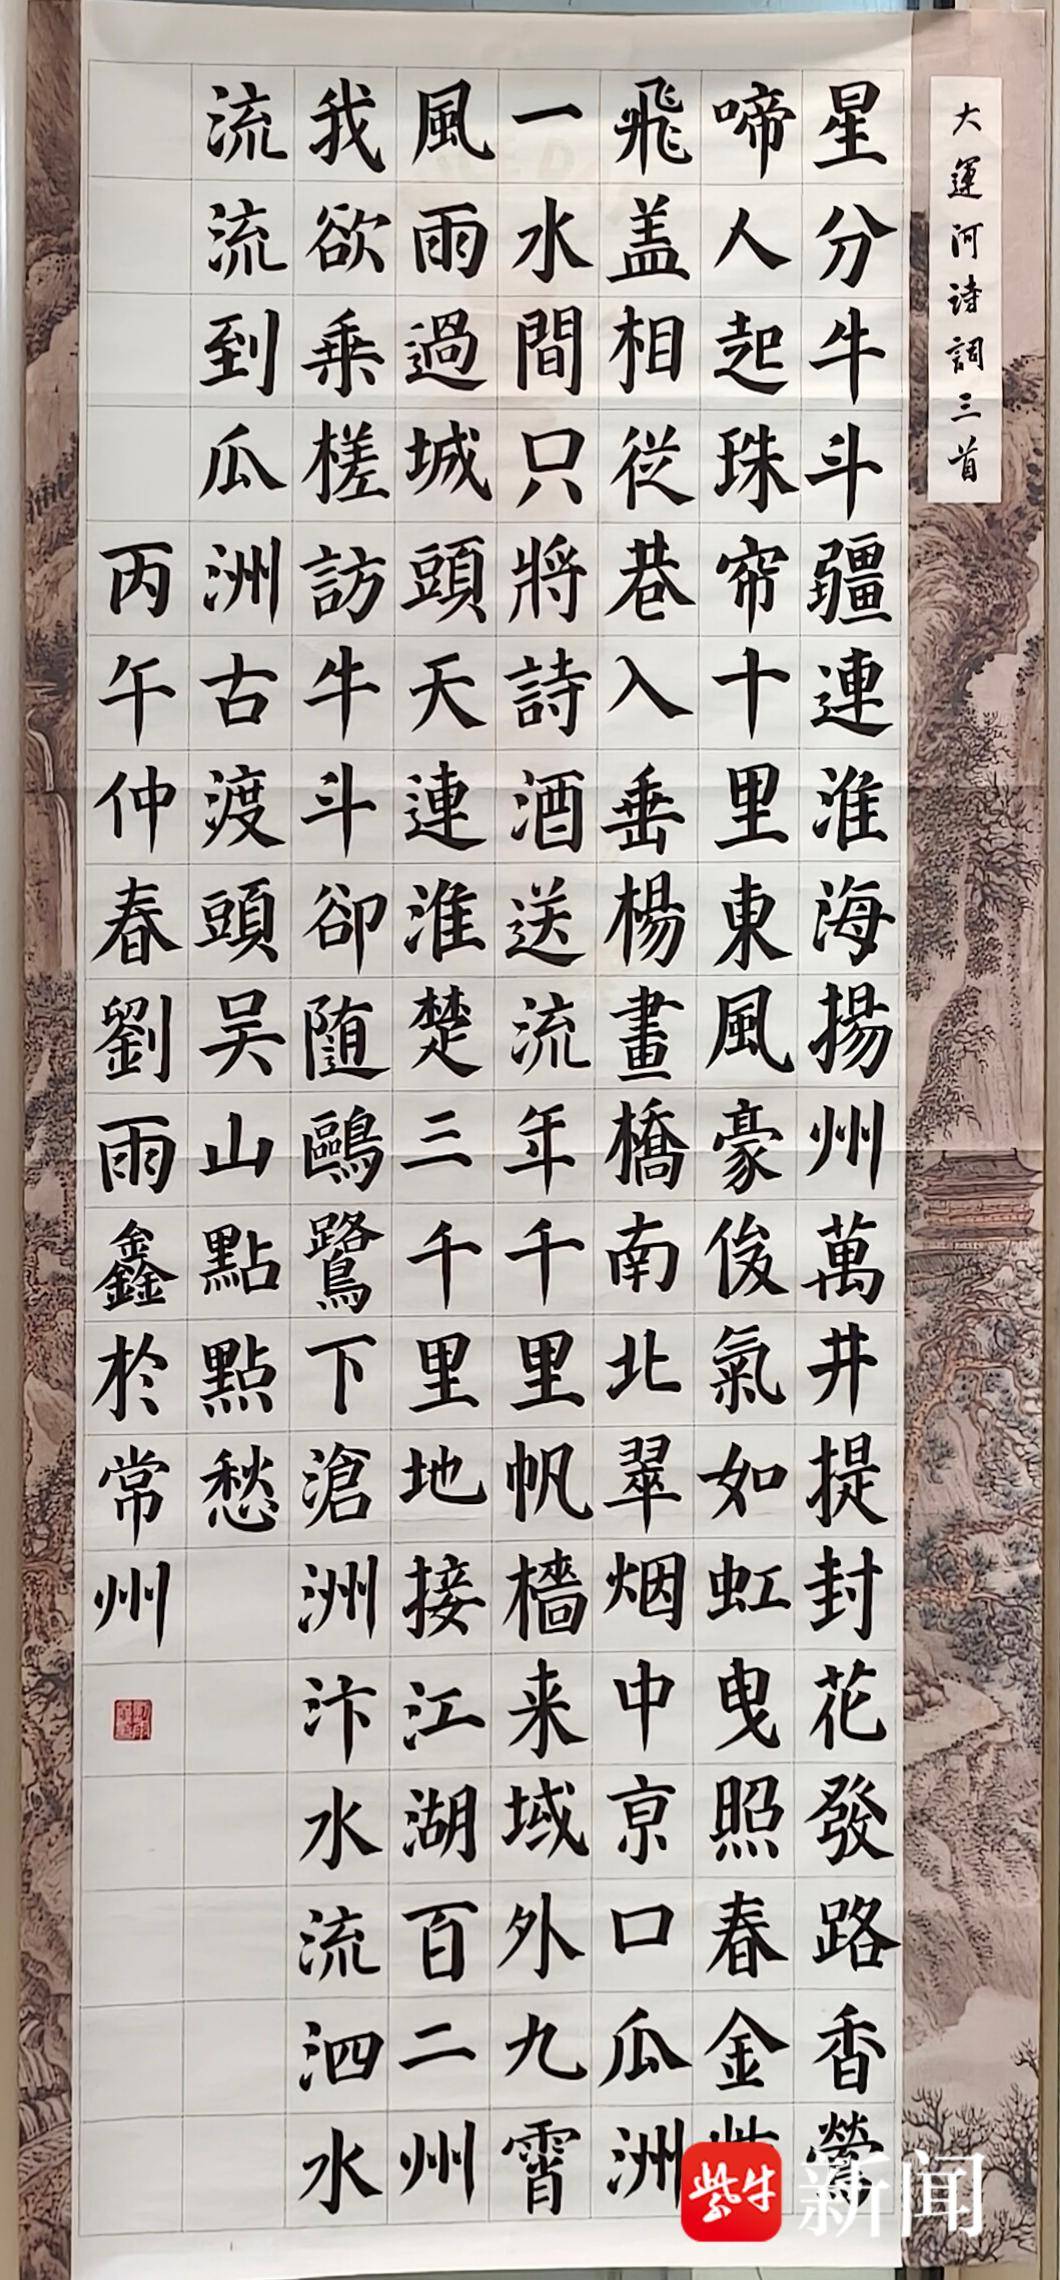 大運河诗詞三首
星分牛斗疆連淮海揚州萬井提封花發路香鶯
啼人起珠帘十里東風豪俊氣如虹曳照春金
飛盖相從巷入垂楊畫橋南北翠烟中京口瓜洲
一水間只將詩酒送流年千里帆檣来域外九霄
風雨過城頭天連淮楚三千里地接江湖百二州
我欲乘槎訪牛斗卻随鷗鷺下滄洲汴水流泗水
流流到瓜洲古渡頭吴山點點愁
丙午仲春劉雨鑫於常州
紫牛新闻